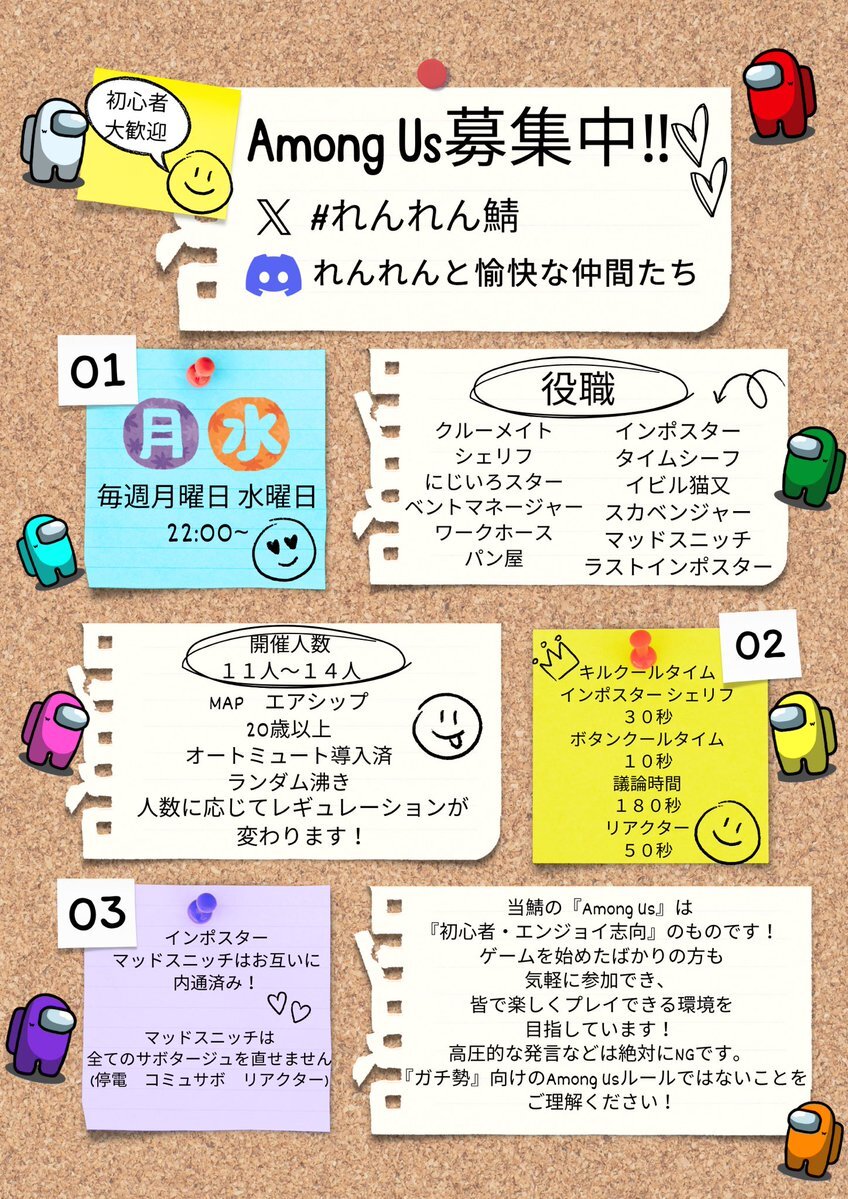 初心者
大歓迎
Among Us募集中!!
X #れんれん鯖
れんれんと愉快な仲間たち
01
月 水
毎週月曜日 水曜日
22:00~
役職
クルーメイト
シェリフ
にじいろスター
ベントマネージャー
ワークホース
パン屋
インポスター
タイムシーフ
イビル猫又
スカベンジャー
マッドスニッチ
ラストインポスター
開催人数
11人〜14人
MAP　エアシップ
20歳以上
オートミュート導入済
ランダム沸き
人数に応じてレギュレーションが
変わります！
02
キルクールタイム
インポスター シェリフ
３０秒
ボタンクールタイム
１０秒
議論時間
１８０秒
リアクター
５０秒
03
インポスター
マッドスニッチはお互いに
内通済み！
マッドスニッチは
全てのサボタージュを直せません
(停電　コミュサボ　リアクター)
当鯖の『Among Us』は
『初心者・エンジョイ志向』のものです！
ゲームを始めたばかりの方も
気軽に参加でき、
皆で楽しくプレイできる環境を
目指しています！
高圧的な発言などは絶対にNGです。
『ガチ勢』向けのAmong Usルールではないことを
ご理解ください！